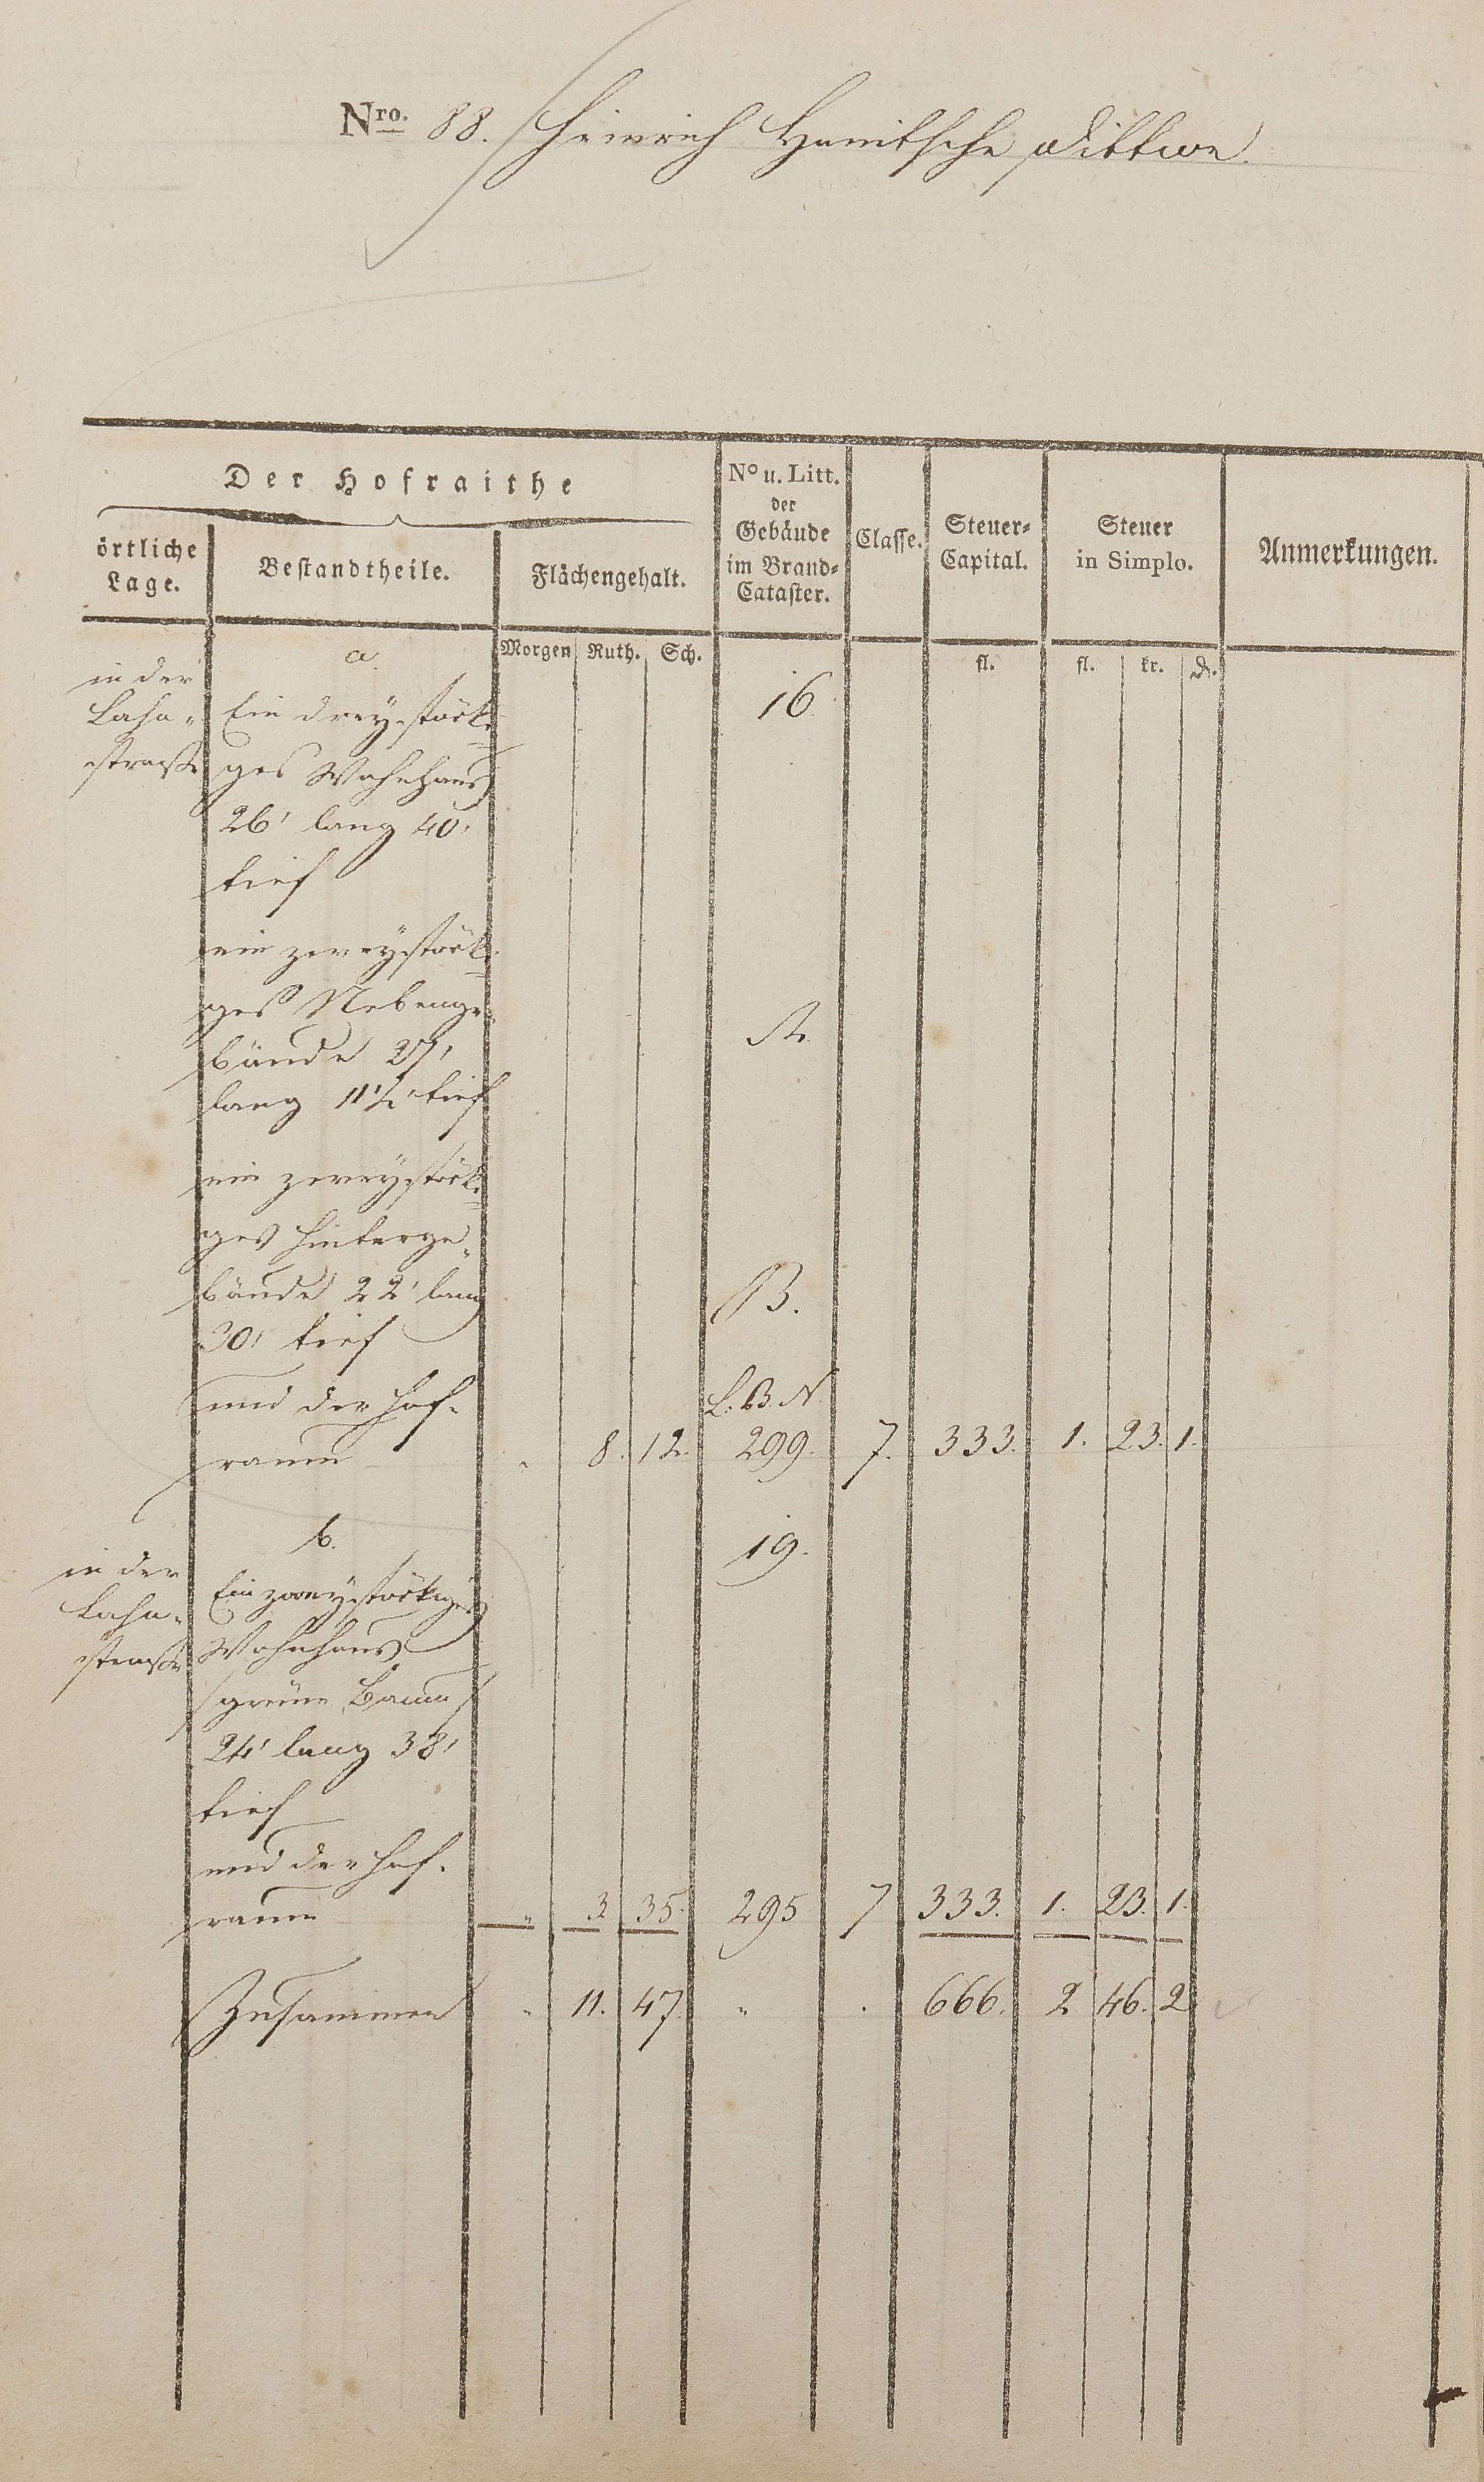 Nro. 88. Heinrich Hanitsche Wittwe.
Der Hofraithe
örtliche
Lage.
Bestandtheile.
Flächengehalt.
No u. Litt.
der
Gebäude
im Brand-
Cataster.
Classe.
Steuer-
Capital.
Steuer
in Simplo.
Anmerkungen.
Morgen Ruth. Sch.
fl. fl. kr. d.
in der
Lahn-
straße
a.
Ein dreystöcki- 16.
ges Wohnhaus
26' lang 40'
tief
ein zweystöcki-
ges Nebenge-
bäude 27' A.
lang 11½' tief
ein zweystöcki-
ges Hinterge-
bäude 22' lang B.
30' tief
und der Hof- L. B. N.
raum " 8. 12. 299. 7. 333. 1. 23. 1.
in der
Lahn-
straße
b. 19.
Ein zweystöckiges
Wohnhaus
/grüne Baum/
24' lang 38'
tief
und der Hof-
raum " 3 35. 295 7 333. 1. 23. 1.
Zusammen " 11. 47. " . 666. 2 46. 2